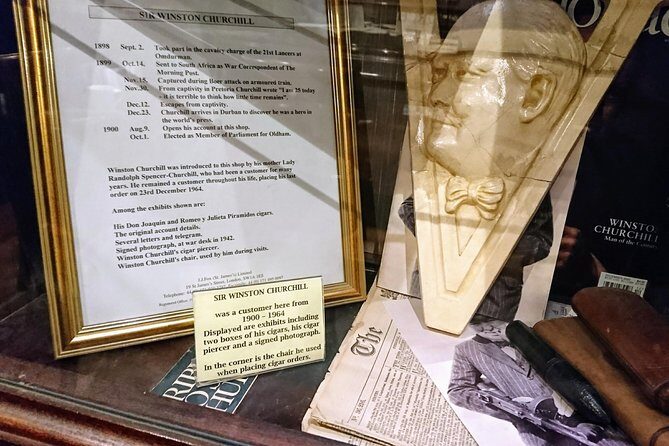 SIR WINSTON CHURCHILL
1898 Sept. 2. Took part in the cavalry charge of the 21st Lancers at
Omdurman.
1899 Oct.14, Sent to South Africa as War Correspondent of The
Morning Post.
Nov.15, Captured during Boer attack on armoured train,
Nov.30, From captivity in Pretoria Churchill wrote "I am 25 today
- it is terrible to think how little time remains".
Dec.12, Escapes from captivity.
Dec.23, Churchill arrives in Durban to discover he was a hero in
the world's press.
1900 Aug.9, Opens his account at this shop.
Oct.1, Elected as Member of Parliament for Oldham.
Winston Churchill was introduced to this shop by his mother Lady
Randolph Spencer-Churchill, who had been a customer for many
years. He remained a customer throughout his life, placing his last
order on 23rd December 1964.
Among the exhibits shown are:
His Don Joaquin and Romeo y Julieta Piramidos cigars.
The original account details.
Several letters and telegram.
Signed photograph, at war desk in 1942.
Winston Churchill's cigar piercer.
Winston Churchill's chair, used by him during visits.
J.J.Fox (St. James's) Limited
19 St. James's Street, London, SW1A 1ES
Telephone:
SIR WINSTON CHURCHILL
was a customer here from
1900 - 1964
Displayed are exhibits including
two boxes of his cigars, his cigar
piercer and a signed photograph.
In the corner is the chair he used
when placing cigar orders.
The
WINSTON
CHURCHILL
Man of the Century